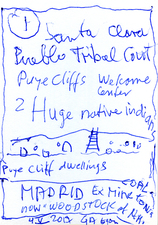 1
Santa Clara
Pueblo Tribal Court
Puye Cliffs Welcome
Center
2 Huge native indian
Puye Cliff dwellings
COAL
MADRID Ex Mine town
now = WOODSTOCK of N.M.
2013